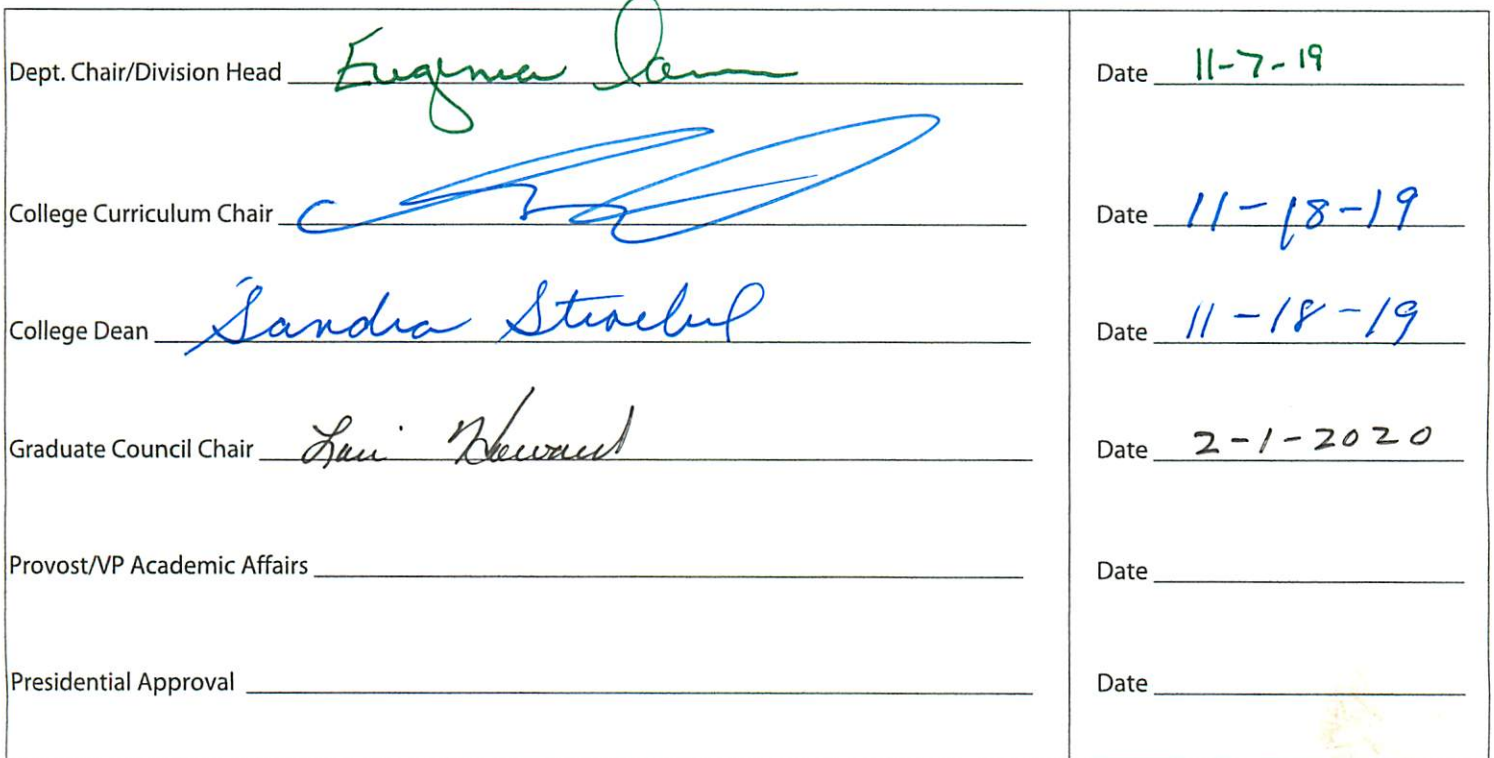 Dept. Chair/Division Head Eugenia Date 11-7-19
College Curriculum Chair Date 11-18-19
College Dean Sandra Stroebel Date 11-18-19
Graduate Council Chair Lori Howard Date 2-1-2020
Provost/VP Academic Affairs Date
Presidential Approval Date